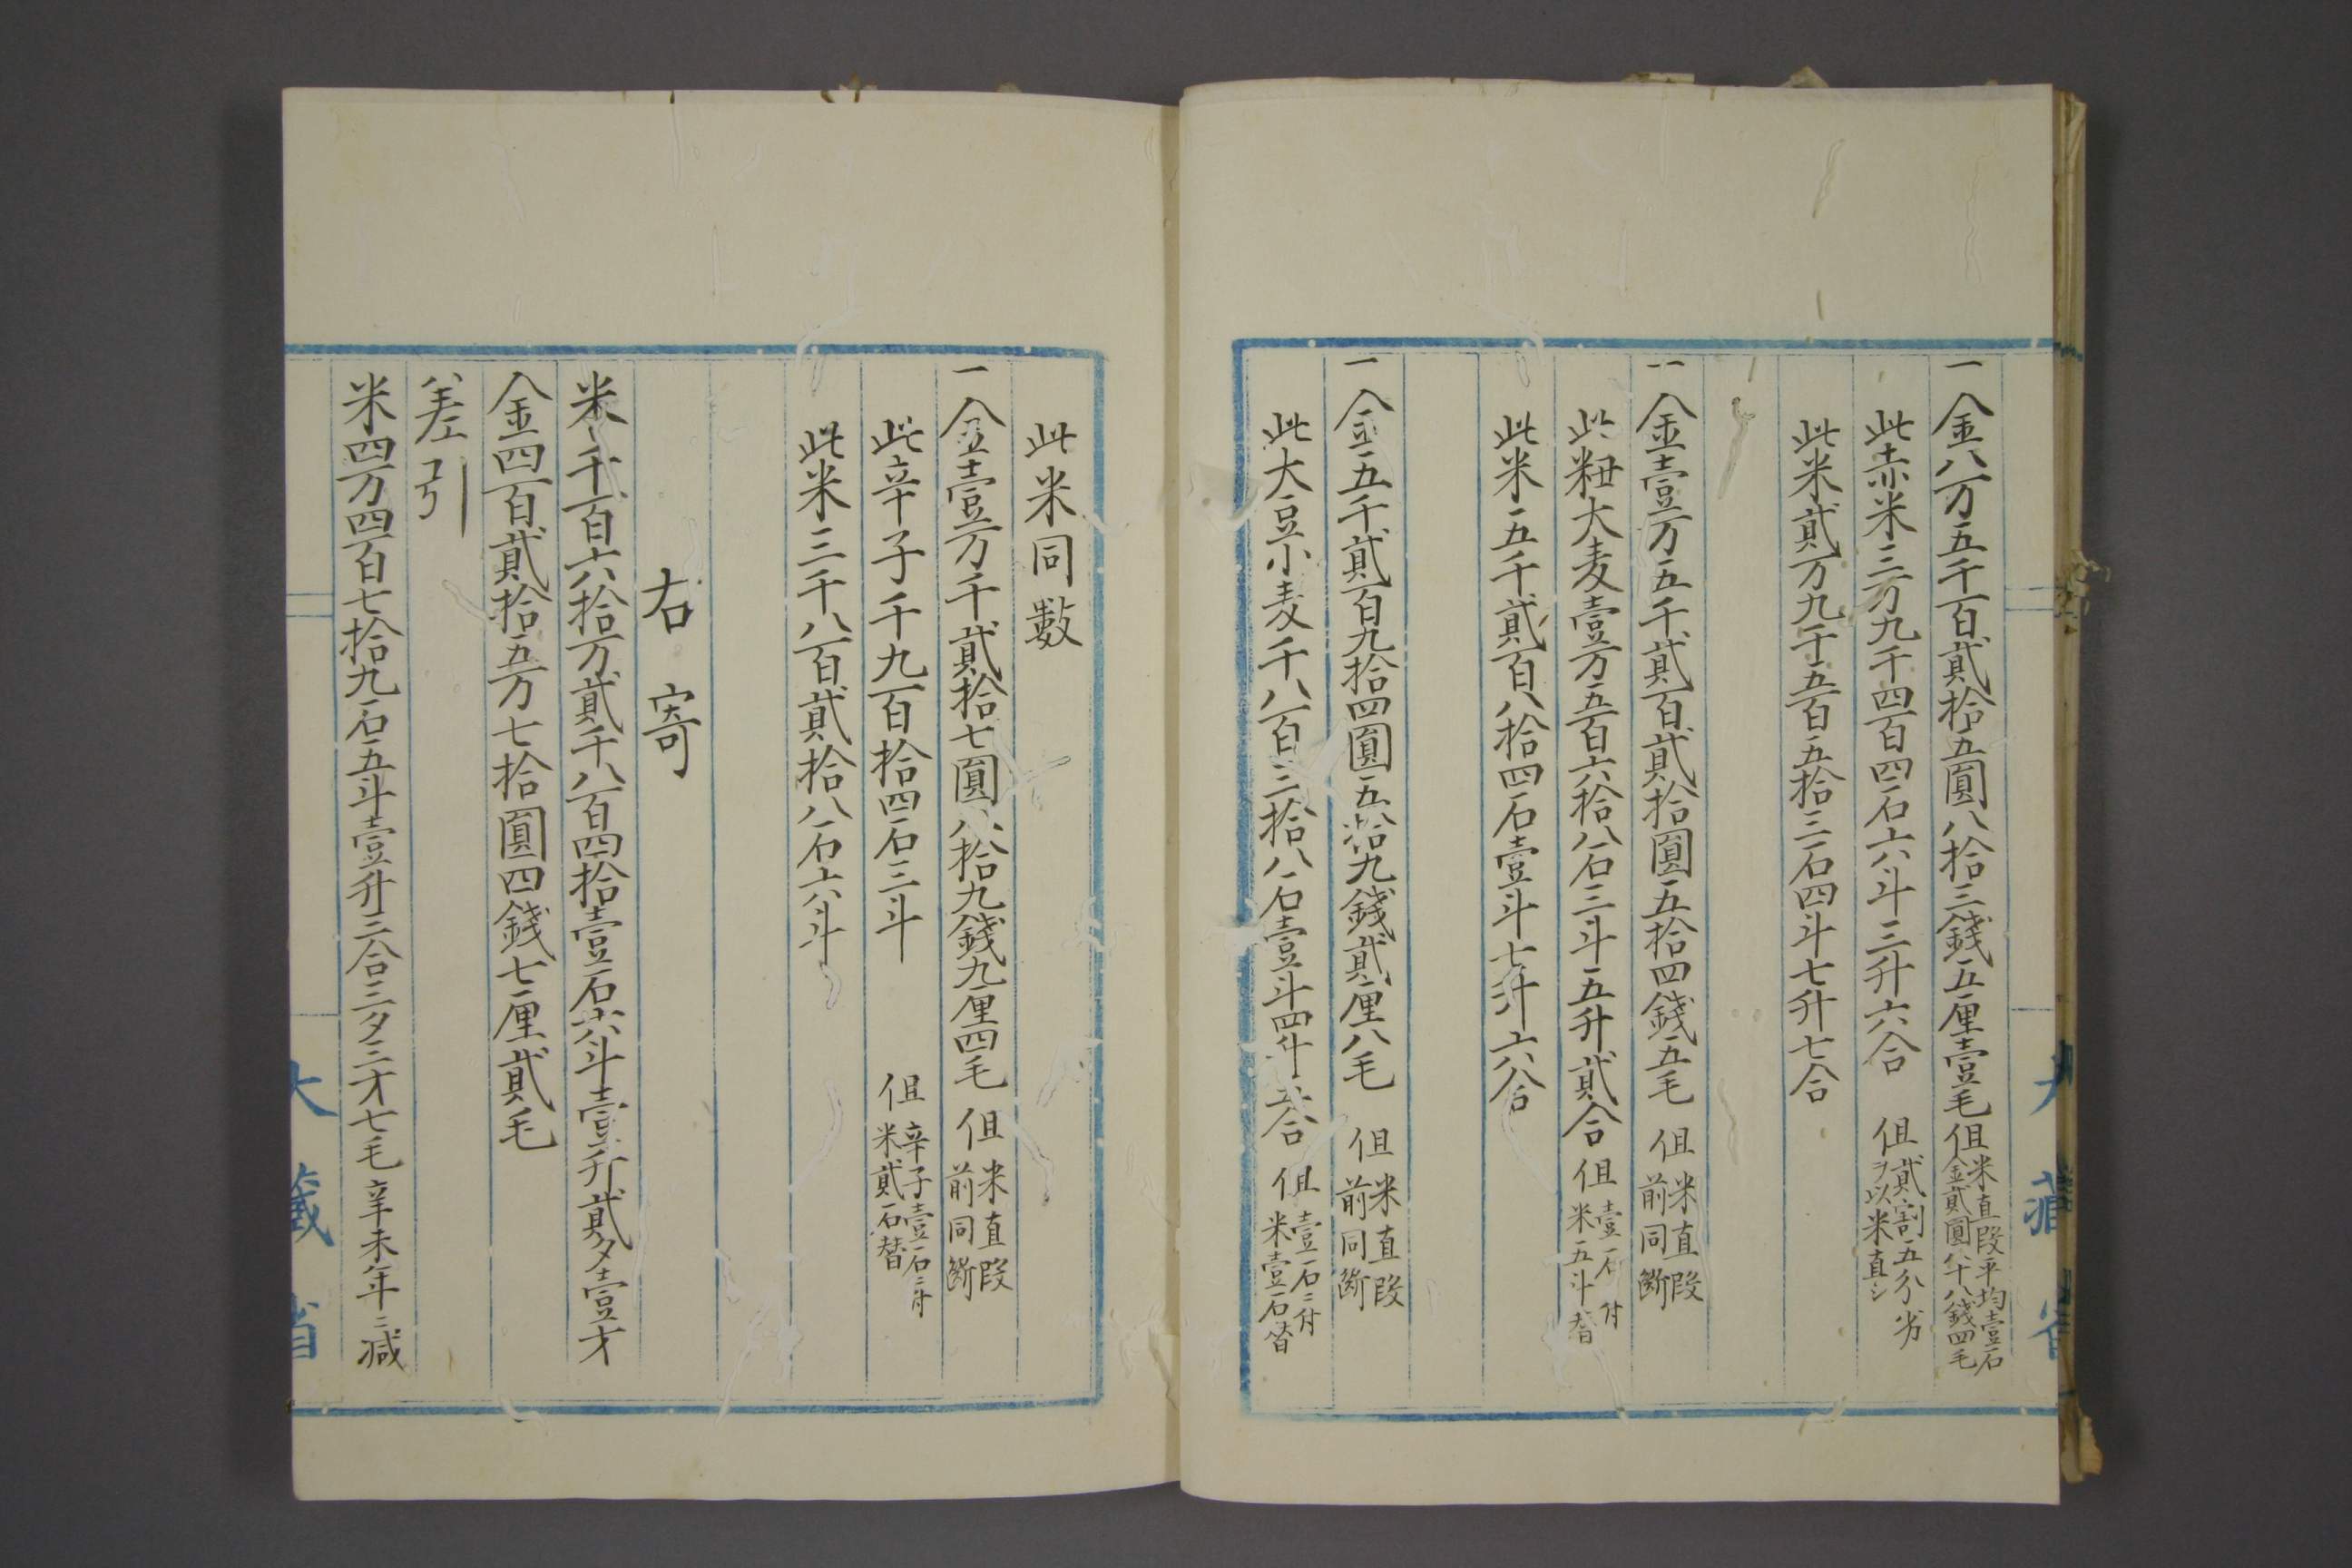 大藏省
一金八万五千百貳拾五圓八拾三錢五厘壹毛 但米直段平均壹石
金貳圓八十八錢四毛
此赤米三万九千四百四石六斗三升六合 但貳割五分劣
ヲ以米直シ
此米貳万九千五百五拾三石四斗七升七合
一金壹万五千貳百貳拾圓五拾四錢五毛 但米直段
前同断
此籾大麦壹万五百六拾八石三斗五升貳合 但壹石付
米五斗替
此米五千貳百八拾四石壹斗七升六合
一金五千貳百九拾四圓五拾九錢貳厘八毛 但米直段
前同断
此大豆小麦千八百三拾八石壹斗四升五合 但壹石ニ付
米壹石替
此米同數
一金壹万千貳拾七圓八拾九錢九厘四毛 但米直段
前同断
此辛子千九百拾四石三斗 但辛子壹石ニ付
米貳石替
此米三千八百貳拾八石六斗
右寄
米千百六拾万貳千八百四拾壹石六斗壹升貳夕壹才
金四百貳拾五万七拾圓四錢七厘貳毛
差引
米四万四百七拾九石五斗壹升三合三夕三才七毛 辛未年ニ減
大藏省